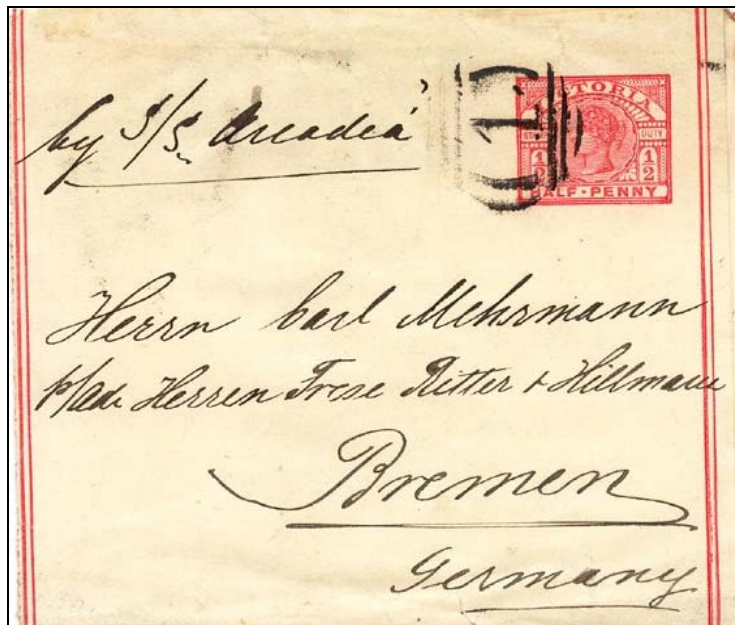 by S/S. Arcadia
1
VICTORIA
STAMP DUTY
1/2 1/2
HALF-PENNY
Herrn Carl Mehrmann
p/Adr Herren Frese Ritter & Hillmann
Bremen
Germany